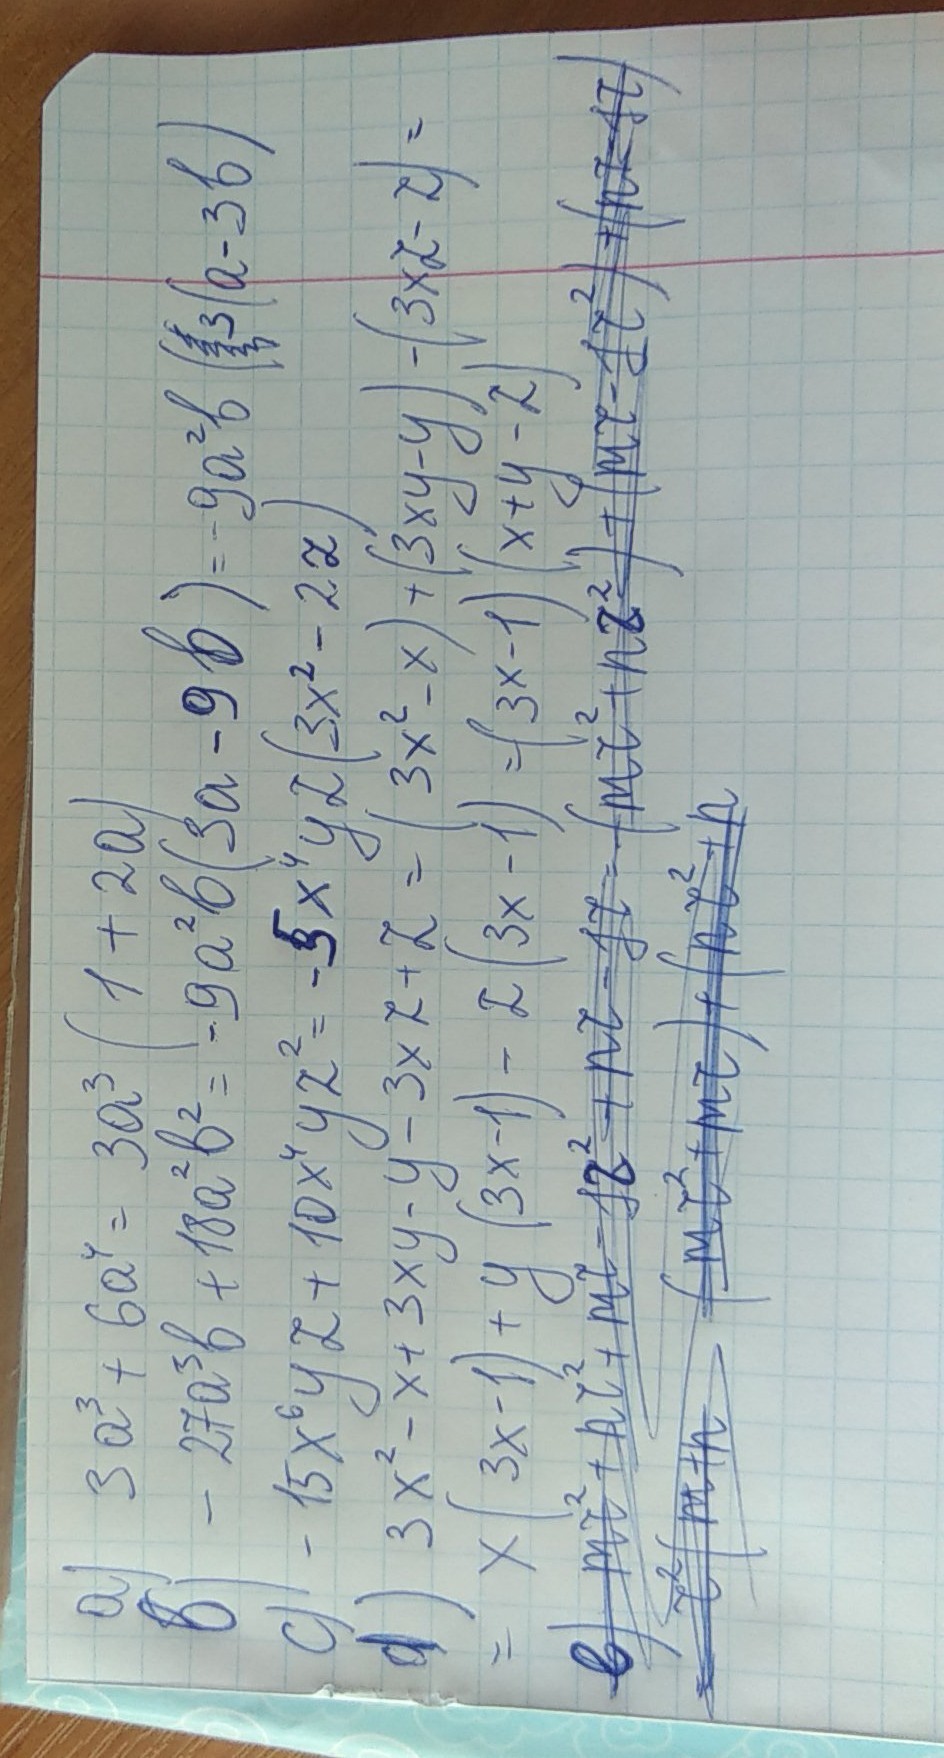 a) 3a³ + 6a⁴ = 3a³ (1 + 2a)
b) - 27a³b + 18a²b² = -9a²b (3a - 9b) = -9a²b (3(a - 3b)
c) - 15x⁶yz + 10x⁴yz² = -5x⁴yz (3x² - 2z)
d) 3x² - x + 3xy - y - 3xz + z = (3x² - x) + (3xy - y) - (3xz - z) =
= x (3x - 1) + y (3x - 1) - z (3x - 1) = (3x - 1) (x + y - z)